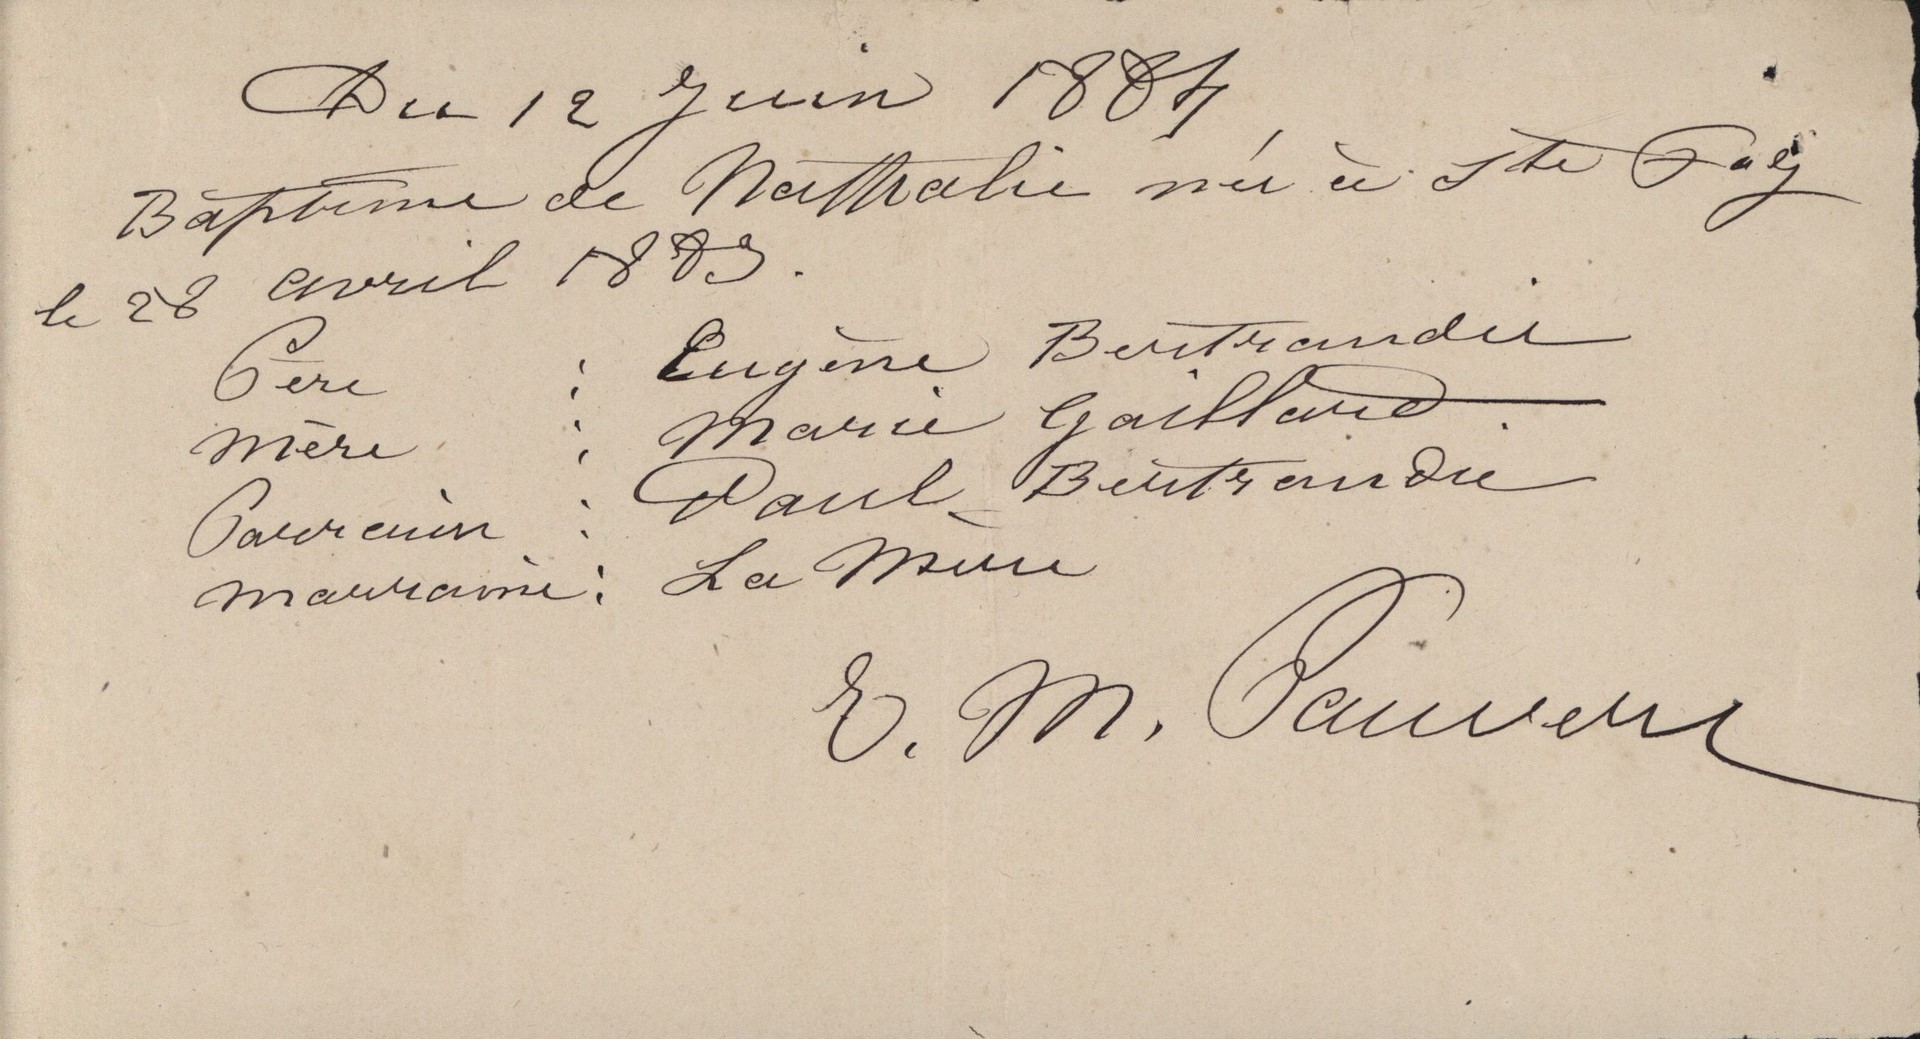 Du 12 Juin 1884
Baptême de Nathalie née à Ste Foy
le 28 avril 1883.
Père : Eugène Bertrandie
Mère : Marie Gaillard
Parrain : Paul Bertrandie
Marraine : La Mère
E. M. Pauvert